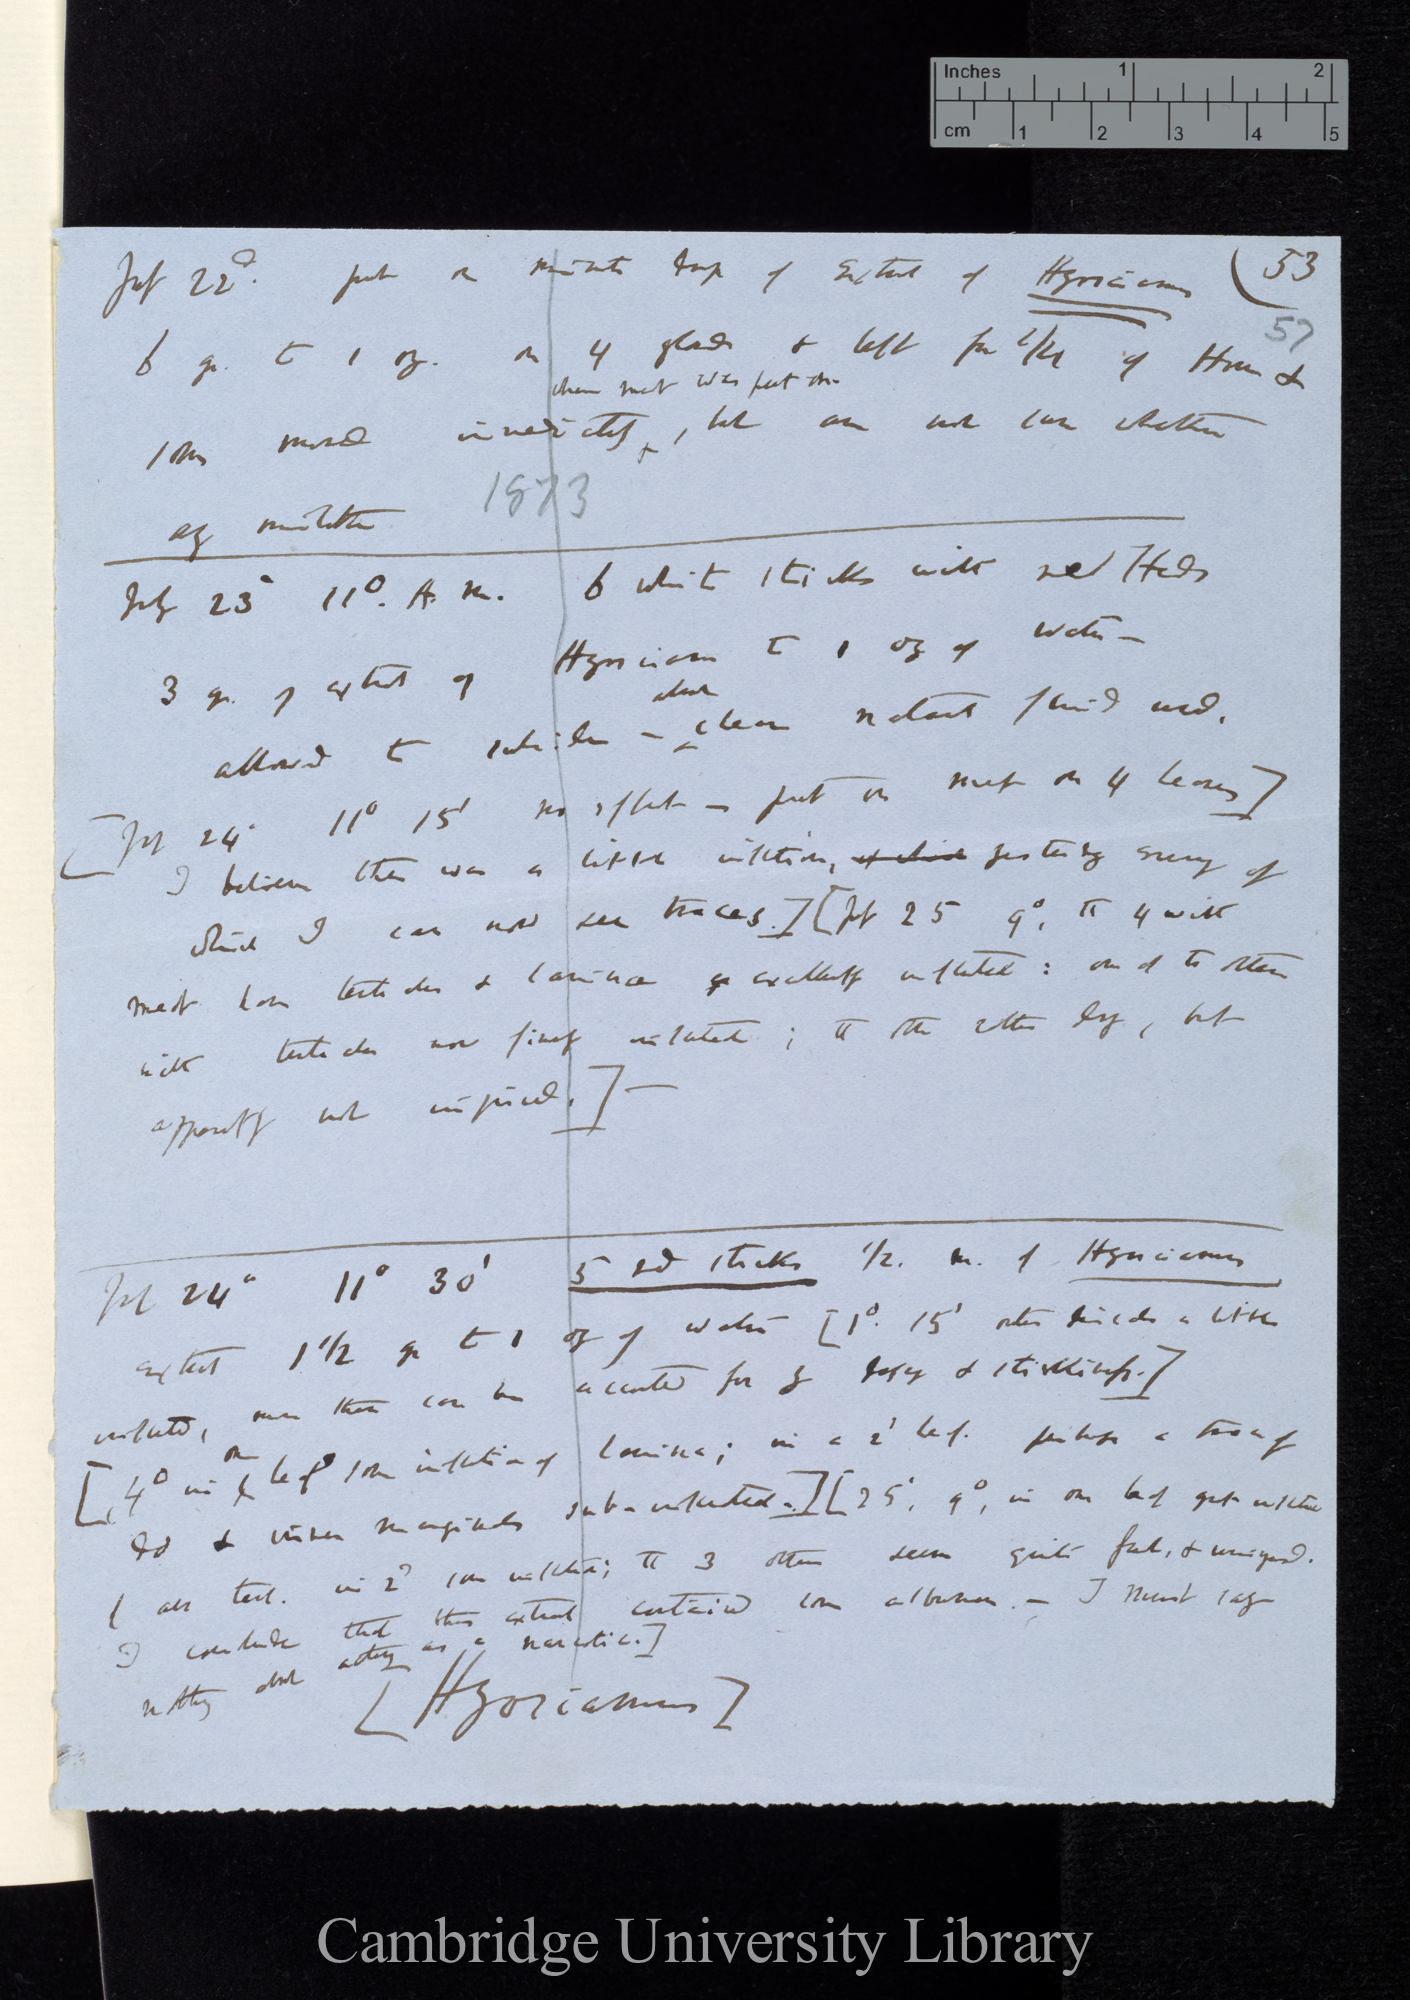 Inches 1 2
cm 1 2 3 4 5
(53
July 22d. put a minute drop of Extract of Hyosciamus
57
6 gr. to 1 oz. on 4 glands & left for 1/4 of Hour &
when meat was put on
some moved immediately, but am not sure whether
1873
July 23d 11°. A.M. 6 white sticks with red Heads
3 gr. of extract of Hyosciam to 1 oz of water —
about
allowed to subside — clear fluid used.
[July 24" 11° 15' no effect — put on meat on 4 leaves]
I believe there was a little inflection, yesterday evening of
which I can now see traces.] [July 25 9°, the 4 with
meat have tentacles & laminae excellently inflected: one of the others
with tentacles now finely inflected; the other dry, but
apparently not injured.] —
July 24" 11° 30' 5 red sticks 1/2. m. of Hyosciamus
extract 1 1/2 gr to 1 oz of water [1° 15' a little
inflected, more than can be accounted for by & stickiness.]
[4° in one leaf some inflection of lamina; in a 2' leaf. perhaps a trace of
do & marginals sub-inflected.] [25', 9°, in one leaf great inflection
of all tent. in 2d some inflection; the 3 others seem quite fresh, & uninjured.
I conclude that this extract contained some albumen. — I must say
nothing about acting as a narcotic.]
[Hyosciamus]
Cambridge University Library